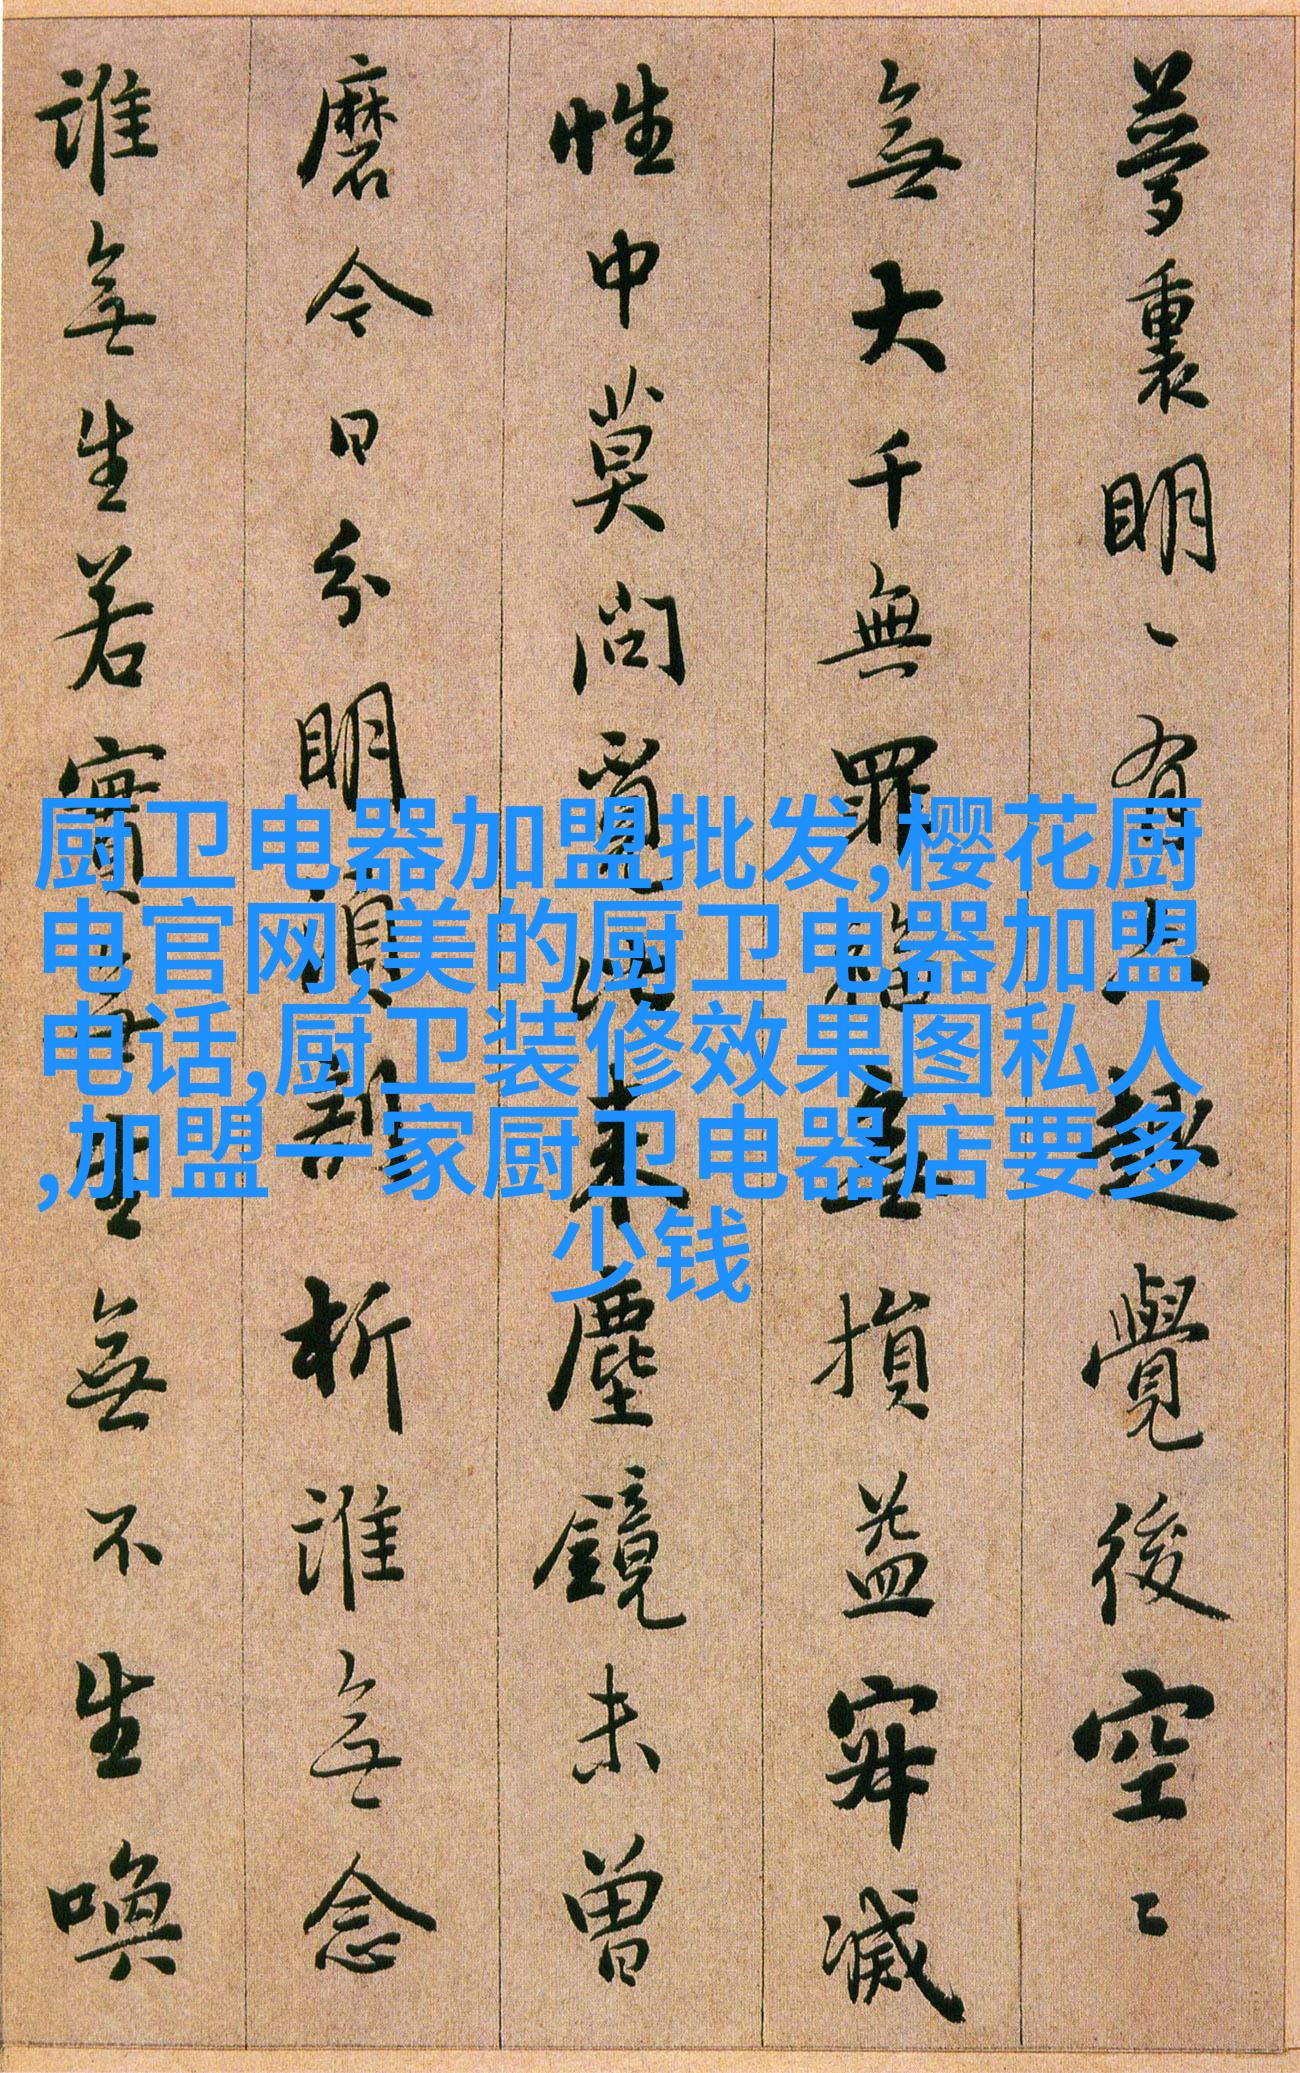 夢裏明〻有六趣覺後空〻
無大千無罪福無損益寂滅
性中莫問覓比来塵鏡未曾
磨今日分明須剖析誰無念
誰無生若實無生無不生喚
厨卫电器加盟批发,樱花厨
电官网,美的厨卫电器加盟
电话,厨卫装修效果图私人
,加盟一家厨卫电器店要多
少钱